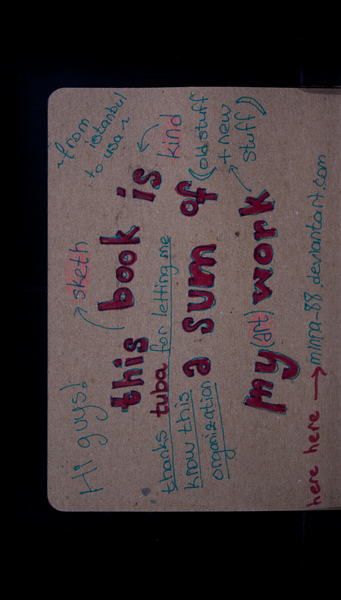 Hi guys!
sketh
~from
istanbul
to usa~
this book is
thanks tuba for letting me
kind
know this
a sum of
(old stuff
+ new
stuff)
organization
my (art) work
here here → minna-88.deviantart.com